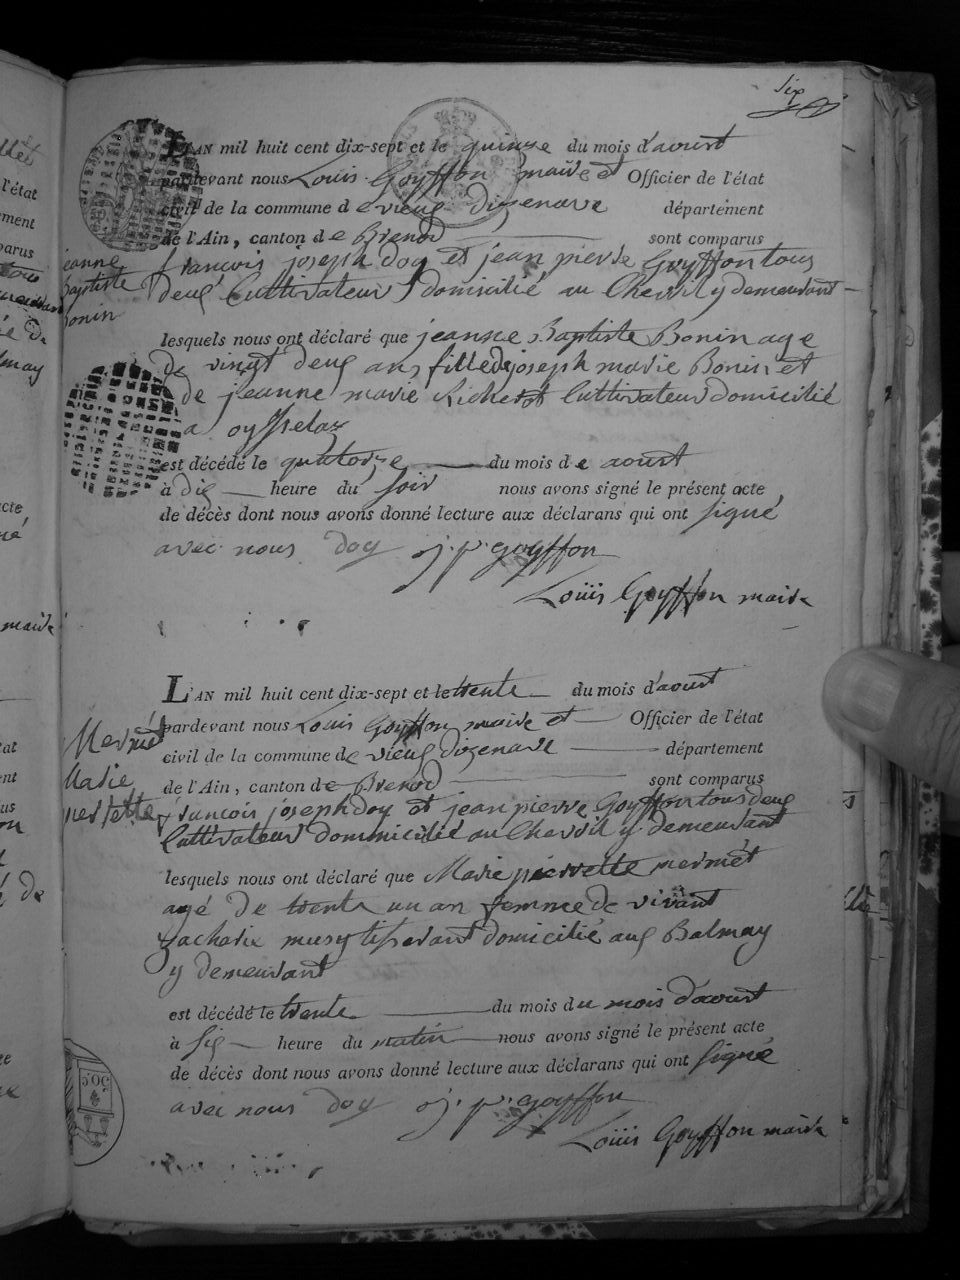 Six
L'AN mil huit cent dix-sept et le quinze du mois d'aoust
pardevant nous Louis Goyffon maire et Officier de l'état
civil de la commune de vieux dizenave département
de l'Ain, canton de Brenod sont comparus
jeanne
Baptiste
Bonin
francois joseph doy et jean pierre Goyffon tous
deux Cultivateur domicilié au Chevril y demeurant
lesquels nous ont déclaré que jeanne Baptiste Bonin age
de vingt deux ans fille de joseph marie Bonin et
de jeanne marie Richerot Cultivateur domicilié
a oysselaz
est décédé le quatorze du mois de aoust
à dix heure du soir nous avons signé le présent acte
de décès dont nous avons donné lecture aux déclarans qui ont signé
avec nous Doy j. p. goyffon
Louis Goyffon maire
L'AN mil huit cent dix-sept et le trente du mois d'aoust
pardevant nous Louis Goyffon maire et Officier de l'état
civil de la commune de vieux dizenave département
de l'Ain, canton de Brenod sont comparus
Mermet
Marie
francois joseph doy et jean pierre Goyffon tous deux
Cultivateur dommicilié au Chevril y demeurant
lesquels nous ont déclaré que Marie pierrette mermet
agé de trente un an femme de vivant
zacharie musy tiserant domicilié aux Balmay
y demeurant
est décédé le trente du mois du mois d'aoust
à six heure du matin nous avons signé le présent acte
de décès dont nous avons donné lecture aux déclarans qui ont signé
avec nous Doy j. p. goyffon
Louis Goyffon maire